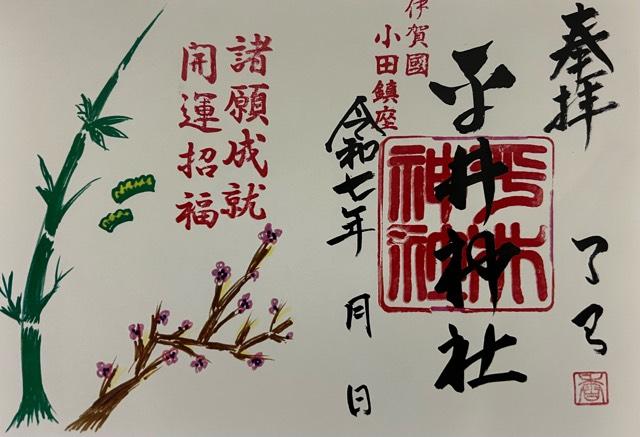 奉拝
伊賀國
小田鎮座
平井神社
平井
神社
令和七年　月　日
諸願成就
開運招福